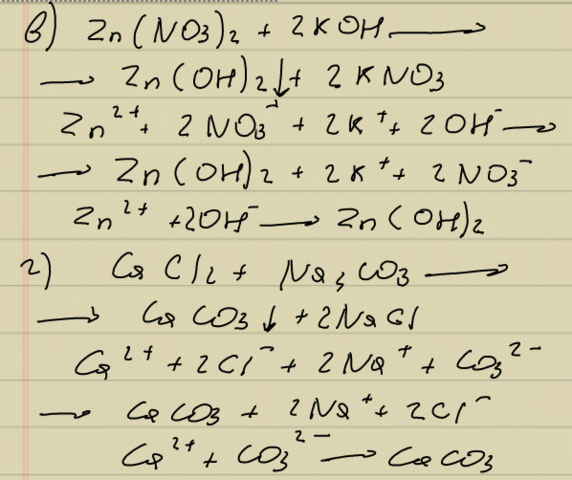 в) Zn(NO₃)₂ + 2KOH ⟶
⟶ Zn(OH)₂↓ + 2KNO₃
Zn²⁺ + 2NO₃⁻ + 2K⁺ + 2OH⁻ ⟶
⟶ Zn(OH)₂ + 2K⁺ + 2NO₃⁻
Zn²⁺ + 2OH⁻ ⟶ Zn(OH)₂
г) CaCl₂ + Na₂CO₃ ⟶
⟶ CaCO₃↓ + 2NaCl
Ca²⁺ + 2Cl⁻ + 2Na⁺ + CO₃²⁻
⟶ CaCO₃ + 2Na⁺ + 2Cl⁻
Ca²⁺ + CO₃²⁻ ⟶ CaCO₃